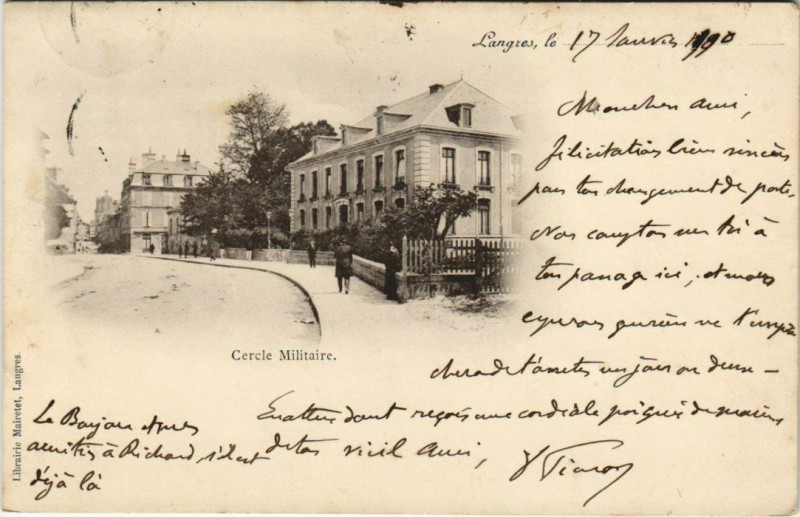 Langres, le 17 Janvier 1900
Mon cher ami,
félicitations bien sincères
pour ton changement de poste.
Nous comptons sur toi à
ton passage ici, et nous
espérons que rien ne t'empê
chera de t'arrêter un jour ou deux -
En attendant reçois une cordiale poignée de mains
de ton vieil ami,
Le Bonjour et mes
amitiés à Richard, s'il est
déjà là
Cercle Militaire.
Librairie Mairetet, Langres.